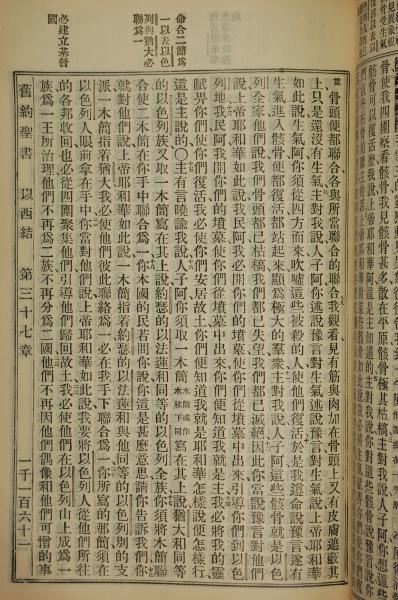 骨使我四圍察看骸骨我見骸骨甚多散在平原骸骨極其枯槁主對我說人子阿你想這些
骸骨可以復活麼我說上帝耶和華阿這是主知道的主對我說你對這些骸骨說豫言
骨頭便都聯合各與所當聯合的聯合我觀看見有筋與肉加在骨頭上又有皮膚遮蔽其
上只是還沒有生氣主對我說人子阿你述說豫言對生氣述說豫言對生氣說上帝耶和華
如此說生氣阿你須從四方而來吹噓這些被殺的人使他們復活於是我遵命說豫言遂有
生氣進入骸骨使骸骨復活都站起來顯爲極大的羣衆主對我說人子阿這些骸骨就是以色
列全家他們說我們骨頭都已枯槁我們都已失望我們都已滅絕因此你當說豫言對他們
說上帝耶和華如此說我民阿我必開你們的墳墓使你們從墳墓中出來引導你們到以色
列地我民阿我開你們的墳墓使你們從墳墓中出來你們便知道我就是主我必將我的靈
賦畀你們使你們復活我必使你們安居故土你們便知道我就是耶和華怎樣說便怎樣行
這是主說的〇主有言曉諭我說人子阿你須取一木簡木簡或作木杖下同寫在其上說猶大和同等
的以色列族又取一木簡寫在其上說約瑟的以法蓮和同等的以色列全族你須將木簡聯
合使二木簡在你手中聯合爲一你本國的民若問你說你這是甚麼意思請你告訴我們你
就對他們說上帝耶和華如此說一木簡指着約瑟的以法蓮與他同等的以色列別的支
派一木簡指着猶大我必使他們彼此聯絡爲一必在我手下聯合爲一你所寫的那簡須在
以色列人眼前拿在手中你當對他們說上帝耶和華如此說我要將以色列人從他們所往
的各邦收回也必從四圍聚集他們引導他們歸回故土我必使他們在以色列山上成爲一
族爲一王所治理他們不再爲二族不再分爲二國他們不再因他們偶像和他們可憎的事
命合二簡爲
一以表以色
列與猶大必
聯爲一
必建立基督
國
舊約聖書 以西結 第三十七章 一千一百六十一